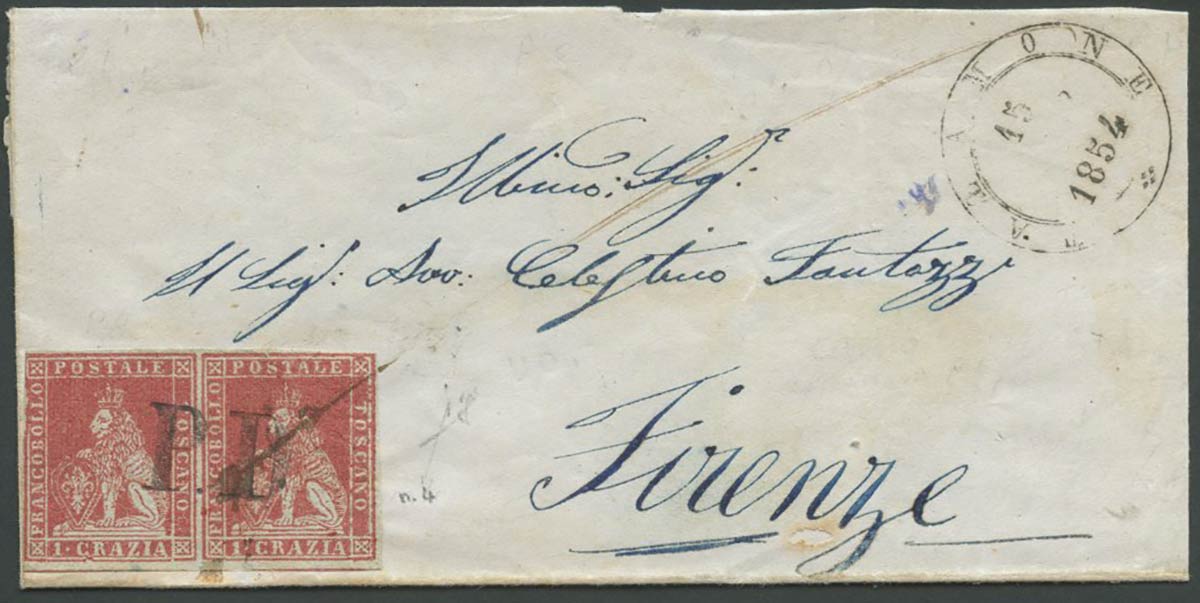 15
1854
Illmo: Sig:
Il Sig: Avv: Celestino Fantozzi
Firenze
FRANCOBOLLO POSTALE TOSCANO
1 · CRAZIA
FRANCOBOLLO POSTALE TOSCANO
1 · CRAZIA
P.D.
n.4